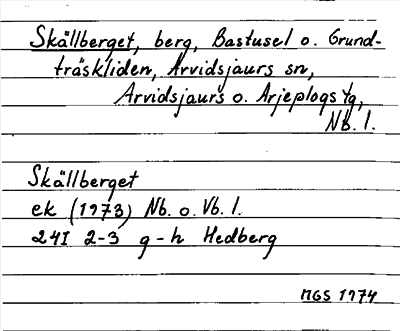 Skällberget, berg, Bastusel o. Grund-
träskliden, Arvidsjaurs sn,
Arvidsjaurs o. Arjeplogs tg,
Nb. l.
Skällberget
ek (1973) Nb. o. Vb. l.
24I 2-3 g-h Hedberg
MGS 1974